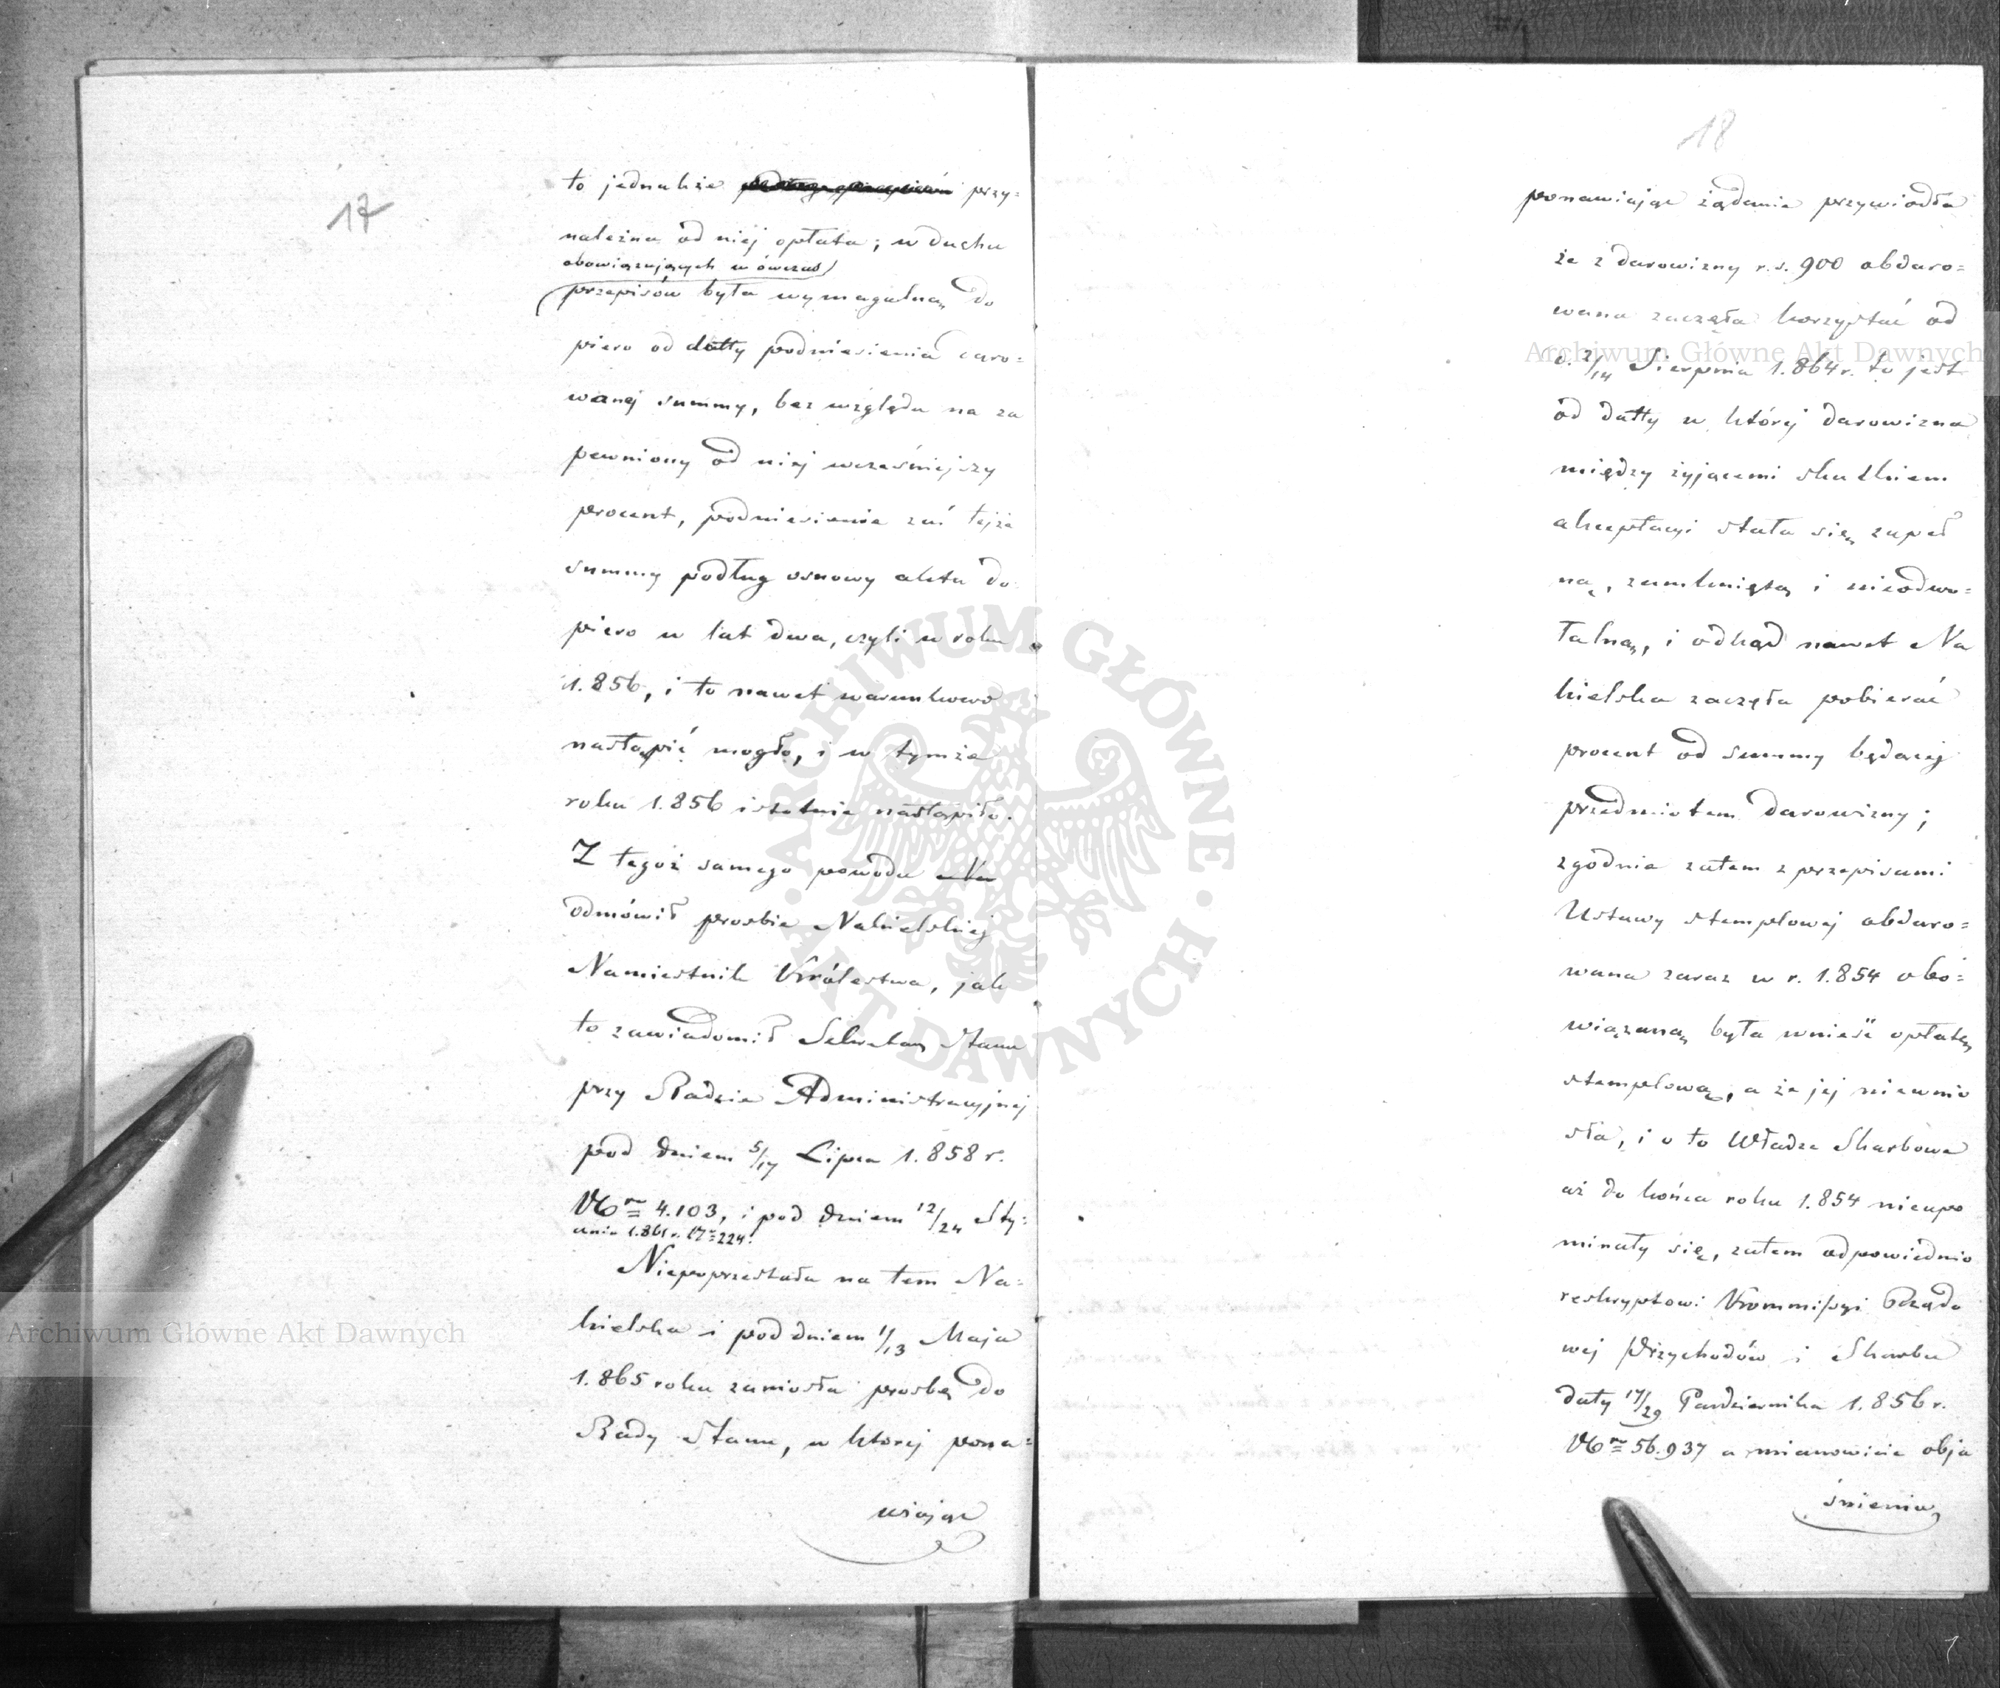 17
to jednakże przy-
należna od niej opłata; w duchu
obowiązujących wówczas
przepisów była wymagalną do
piero od datty podniesienia daro-
wanej summy, bez względu na za
pewniony od niej wcześniejszy
procent, podniesienie zaś tejże
summy podług osnowy aktu do
piero w lat dwa, czyli w roku
1.856, i to nawet warunkowo
nastąpić mogło, i w tymże
roku 1.856 istotnie nastąpiło.
Z tegoż samego powodu
odmówił prosbie Nakielskiej
Namiestnik Królestwa, jak
to zawiadomił Sekretarz Stanu
przy Radzie Administracyjnej
pod dniem 5/17 Lipca 1.858 r.
Nr 4.103, i pod dniem 12/24 Sty-
cznia 1.861 r. Nr 224.
Niepoprzestała na tem Na-
kielska i pod dniem 1/13 Maja
1.865 roku zaniosła prosbę do
Rady Stanu, w ktorej pona-
wiając
18
ponawiając żądanie przywiodła
że z darowizny r.s. 900 obdaro-
wana zaczęła korzystać od
d. 2/14 Sierpnia 1.864 r. to jest
od datty w której darowizna
między żyjącemi skutkiem
akceptacyi stała się zupeł
ną, zamkniętą i nieodwo-
łalną, i odkąd nawet Na
kielska zaczęła pobierać
procent od summy będącej
przedmiotem darowizny;
zgodnie zatem z przepisami
Ustawy stemplowej obdaro-
wana zaraz w r. 1.854 obo-
wiązaną była wnieść opłatę
stemplową, a że jej niewnio
sła, i o to Władze Skarbowe
aż do końca roku 1.854 nieupo
minały się, zatem odpowiednio
reskryptowi Kommissyi Rządo
wej Przychodów i Skarbu
daty 17/29 Pazdziernika 1.856 r.
Nr 56.937 a mianowicie obja
śnienia
Archiwum Główne Akt Dawnych
Archiwum Główne Akt Dawnych
ARCHIWUM GŁÓWNE AKT DAWNYCH